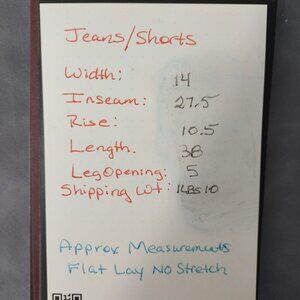 Jeans/Shorts
Width: 14
Inseam: 27.5
Rise: 10.5
Length. 38
Leg Opening: 5
Shipping Wt: 1LBS 10
Approx Measurements
Flat Lay No Stretch